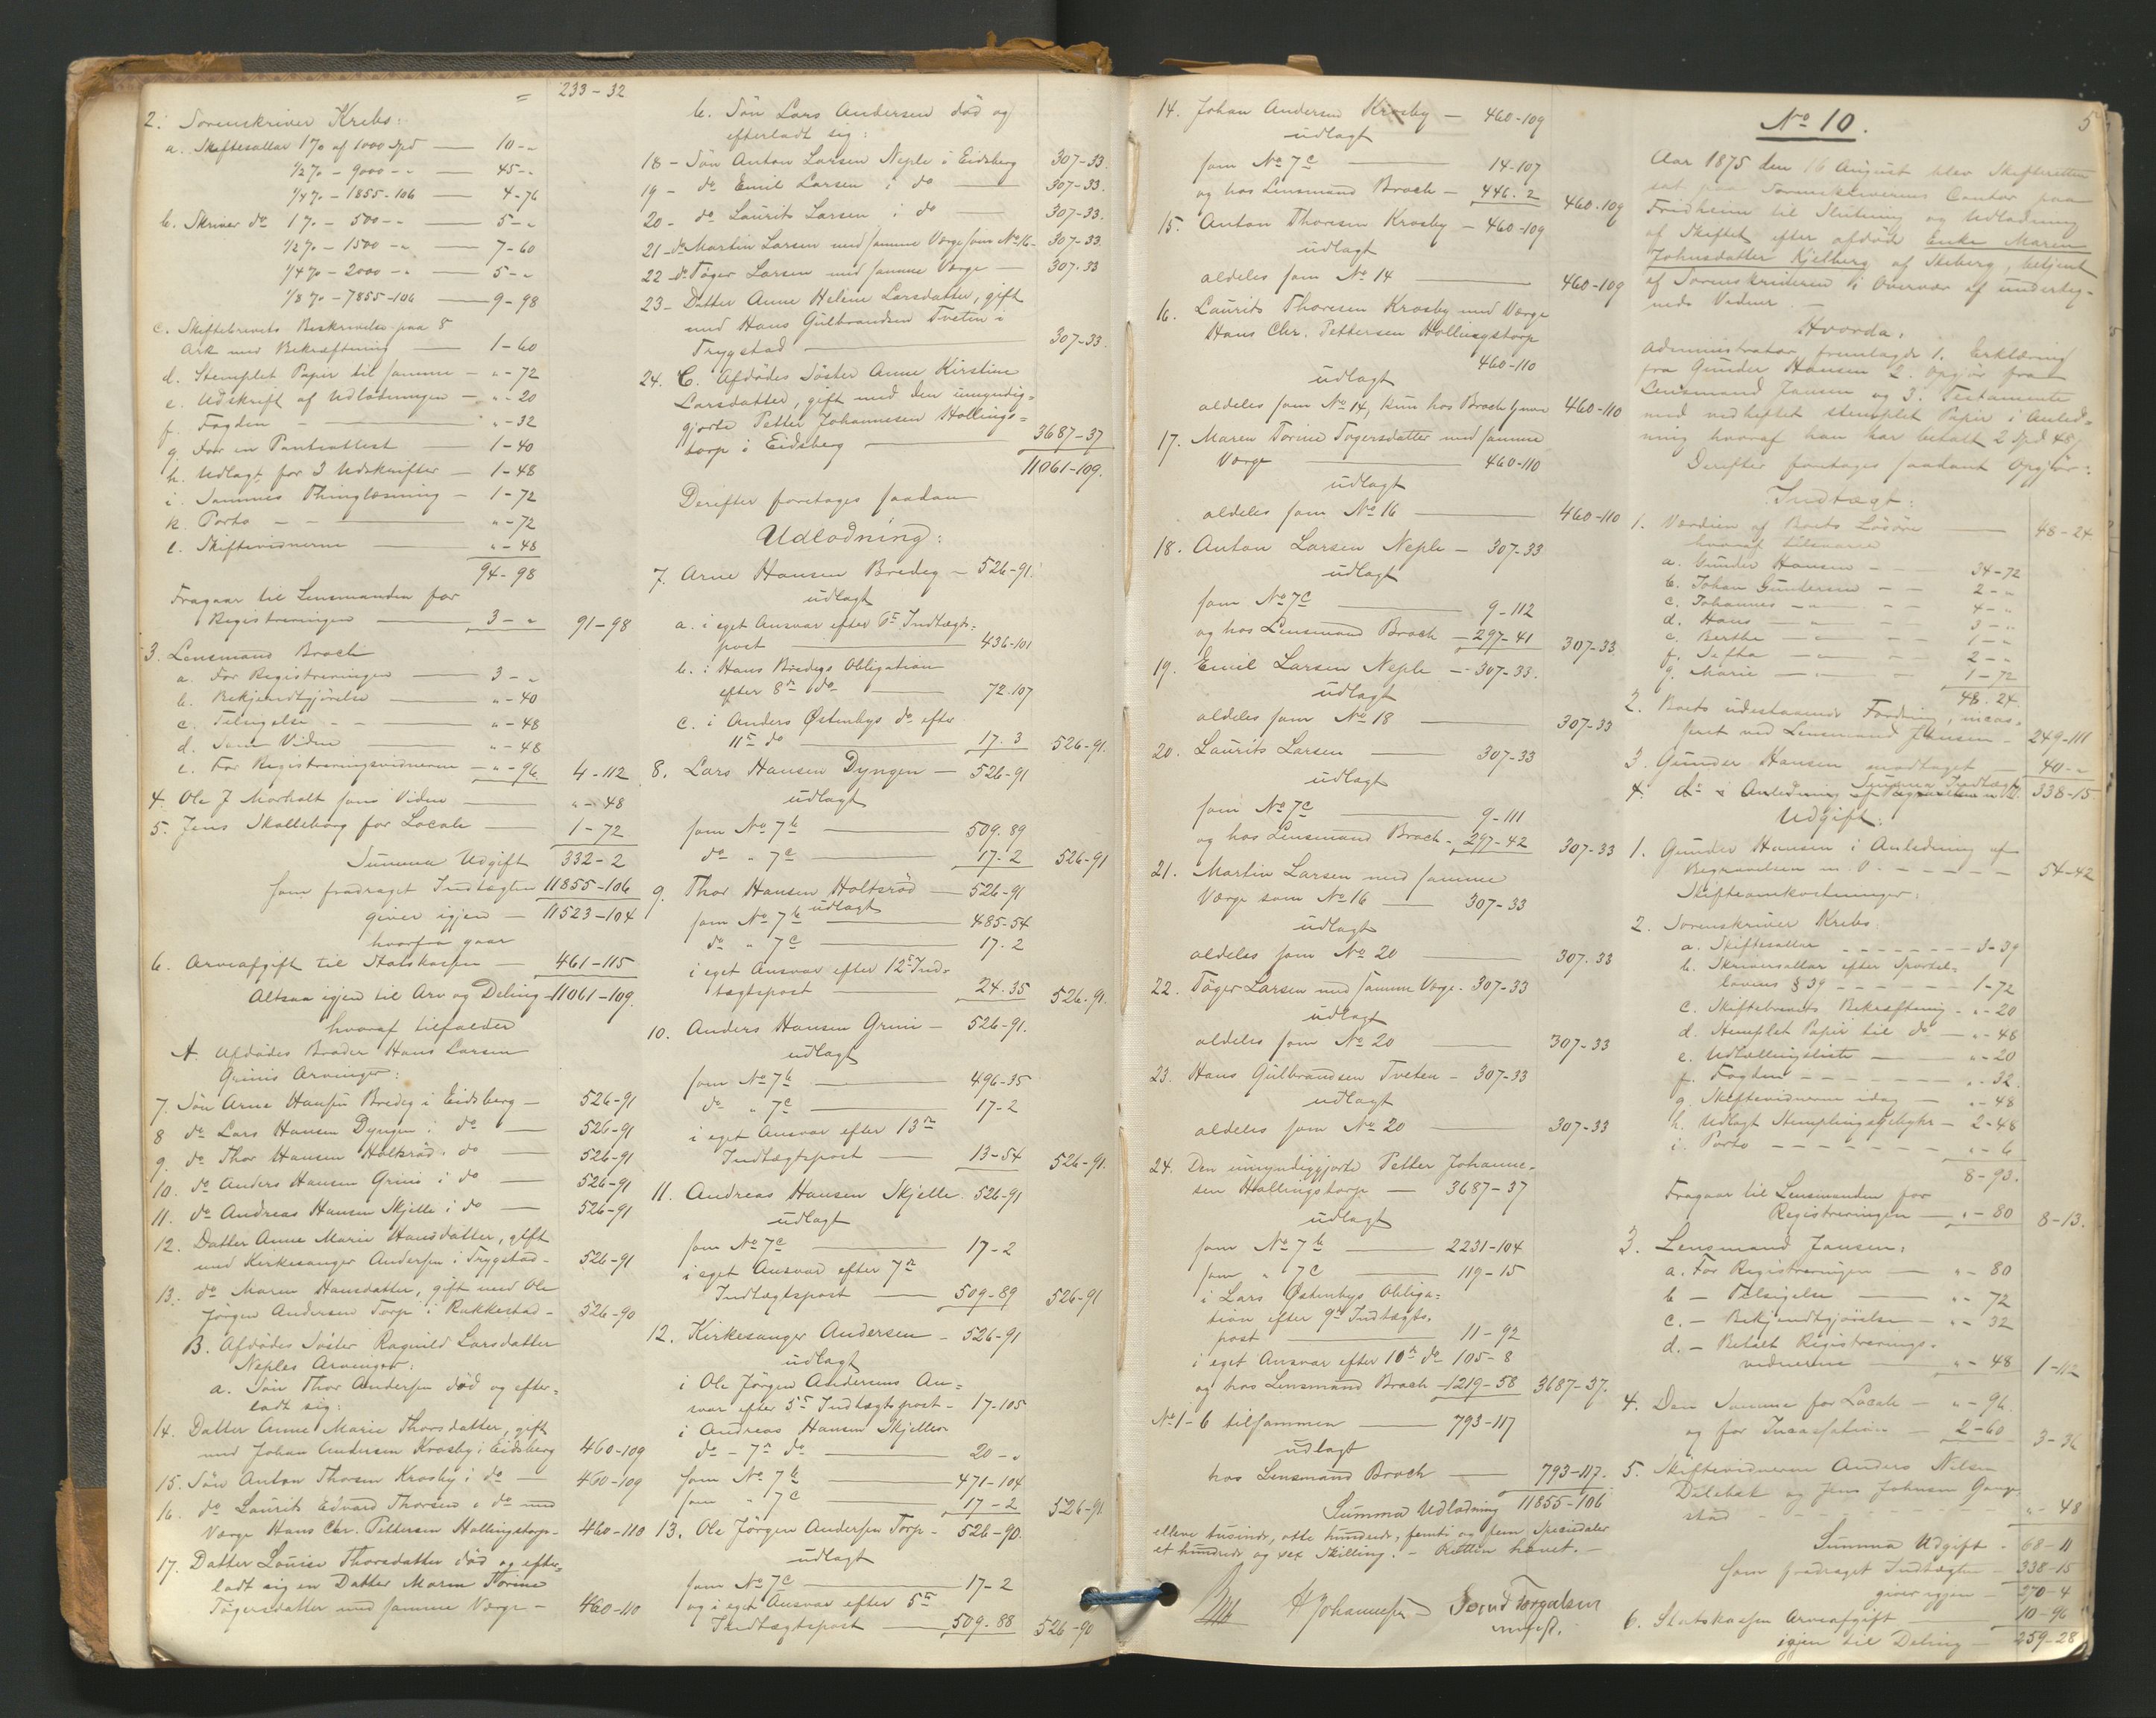 = 233-32
2. Sorenskriver Krebs:
a. Skiftesallar 1 % af 1000 Spd — 10-"
1/2 % - 9000 - " — 45-"
1/4 % - 1855-106 — 4-76
b. Skriver do 1 % - 500 - " — 5-"
1/2 % - 1500 - " — 7-60
1/4 % - 2000 - " — 5-"
1/8 % - 7855-106 — 9-98
c. Skiftebrevets Beskrivelse paa 8
Ark med Bekræftning — 1-60
d. Stemplet Papir til samme — "-72
e. Udskrift af Udlodningen — "-20
f. Fogden — "-32
g. For en Panteattest — 1-40
h. Udlagt for 3 Udskrifter — 1-48
i. Sammes Thinglæsning — 1-72
k. Porto — "-72
l. Skiftevidnerne — "-48
94-98
Fragaar til Lensmanden for
Registreringen — 3-" 91-98
3. Lensmand Broch
a. For Registreringen — 3-"
b. Bekjendtgjörelse — "-40
c. Tilsigelse — "-48
d. Som Vidne — "-48
e. For Registreringsvidnerne — "-96 4-112
4. Ole J Morholt som Vidne — "-48
5. Jens Skolleborg for Locale — 1-72
Summa Udgift 332-2
som fradraget Indtægten 11855-106
giver igjen — 11523-104
hvorfra gaar
6. Arveafgift til Statskassen — 461-115
Altsaa igjen til Arv og Deling - 11061-109.
hvoraf tilfalder
A. Afdödes Broder Hans Larsen
Grinis Arvinger:
7. Sön Arne Hansen Bredeg i Eidsberg — 526-91
8 do Lars Hansen Dyngen i do — 526-91
9. do Thor Hansen Holtsröd i do — 526-91
10. do Anders Hansen Grini i do — 526-91
11. do Andreas Hansen Skjelle i do — 526-91
12. Datter Anne Marie Hansdatter, gift
med Kirkesanger Andersen i Trygstad - 526-91
13. do Maren Hansdatter, gift med Ole
Jörgen Andersen Torp i Rakkestad - 526-90
B. Afdödes Söster Ragnild Larsdatter
Neples Arvinger:
a. Sön Thor Andersen död og efter=
ladt sig:
14. Datter Anne Marie Thorsdatter, gift
med Johan Andersen Krosby i Eidsberg 460-109
15. Sön Anton Thorsen Krosby i do — 460-109
16. do Laurits Edvard Thorsen i do med
Værge Hans Chr. Pettersen Hollingstorp - 460-110
17. Datter Louise Thorsdatter död og efter=
ladt sig en Datter Maren Torine
Tögersdatter med samme Værge - 460-110
b. Sön Lars Andersen död og
efterladt sig:
18 - Sön Anton Larsen Neple i Eidsberg 307-33.
19 - do Emil Larsen i do — 307-33.
20 - do Laurits Larsen i do — 307-33.
21 - do Martin Larsen med samme Værge som No 16 - 307-33.
22 - do Töger Larsen med samme Værge — 307-33
23 - Datter Anne Helene Larsdatter, gift
med Hans Gulbrandsen Tveten i
Trygstad — 307-33.
24. C. Afdödes Söster Anne Kirstine
Larsdatter, gift med den umyndig=
gjorte Petter Johannesen Hollings=
torp i Eidsberg — 3687-37
11061-109.
Derefter foretoges saadan
Udlodning:
7. Arne Hansen Bredeg — 526-91.
udlagt
a. i eget Ansvar efter 6te Indtægts=
post — 436-101
b. i Hans Bredegs Obligation
efter 8de do — 72.107
c. i Anders Østenbys do efter
11te do — 17. 3 526-91.
8. Lars Hansen Dyngen — 526-91
udlagt
som No 7b — 509.89
do " 7c — 17-2 526-91
9. Thor Hansen Holtsröd — 526-91
udlagt
som No 7b — 485-54
do " 7c — 17.2
i eget Ansvar efter 12te Ind=
tægtspost — 24.35 526-91.
10. Anders Hansen Grini — 526-91.
udlagt
som No 7b — 496-35
do " 7c — 17-2
i eget Ansvar efter 13de
Indtægtspost — 13-54 526-91.
11. Andreas Hansen Skjelle 526-91
udlagt
som No 7c — 17-2
i eget Ansvar efter 7de
Indtægtspost — 509-89 526-91
12. Kirkesanger Andersen - 526-91
udlagt
i Ole Jörgen Andersens An=
svar efter 5te Indtægtspost - 17-105
i Andreas Hansen Skjelles
do - 7de do — 20-"
som No 7b — 471-104
som " 7c — 17-2 526-91
13. Ole Jörgen Andersen Torp - 526-90.
udlagt
som No 7c — 17-2
og i eget Ansvar efter 5te
Indtægtspost — 509.88 526-90
14. Johan Andersen Krosby — 460-109
udlagt
som No 7c — 14-107
og hos Lensmand Broch - 446.2 460.109
15. Anton Thoresen Krosby - 460-109
udlagt
aldeles som No 14 — 460-109
16. Laurits Thoresen Krosby med Værge
Hans Chr. Pettersen Hollingstorp
460-110
udlagt
aldeles som No 14, kun hos Broch 460-110
17. Maren Torine Togersdatter med samme
Værge — 460-110
udlagt
aldeles som No 16 — 460-110
18. Anton Larsen Neple - 307-33
udlagt
som No 7c — 9-112
og hos Lensmand Broch - 297-41 307-33.
19. Emil Larsen Neple - 307-33.
udlagt
aldeles som No 18 — 307-33
20. Laurits Larsen — 307-33
udlagt
som No 7c — 9-111
og hos Lensmand Broch - 297-42 307-33
21. Martin Larsen med samme
Værge som No 16 — 307-33
udlagt
aldeles som No 20 — 307.33
22. Töger Larsen med samme Værge - 307-33
udlagt
aldeles som No 20 — 307-33
23. Hans Gulbrandsen Tveten - 307-33
udlagt
aldeles som No 20 — 307-33
24. Den umyndiggjorte Petter Johanne-
sen Hollingstorp — 3687-37
udlagt
som No 7b — 2231-104
som " 7c — 119-15
i Lars Østenbys Obliga=
tion efter 9de Indtægts-
post — 11-92
i eget Ansvar efter 10de do 105-8
og hos Lensmand Broch - 1219-58 3687-37.
No 1-6 tilsammen — 793-117
udlagt
hos Lensmand Broch — 793-117.
Summa Udlodning 11855-106
elleve tusinde, otte hundrede, femti og fem Speciedaler
et hundrede og sex Skilling. - Retten hævet. -
H Johannesen
5
No 10.
Aar 1875 den 16 August blev Skifteretten
sat paa Sorenskriverens Contor paa
Fridheim til Slutning og Udlodning
af Skiftet efter afdöde Enke Maren
Johnsdatter Kjelberg af Skiberg, betjent
af Sorenskriveren i Overvær af underteg-
nede Vidner. -
Hvorda,
Administrator fremlagde 1. Erklæring
fra Gunder Hansen 2. Opgjör fra
Lensmand Jansen og 3. Testamente
med vedheftet stemplet Papir i Anled-
ning hvoraf han har betalt 2 Spd 48 s
Derefter foretoges saadant Opgjör:
Indtægt:
1. Værdien af Boets Lösöre — 48-24
hvoraf tilsvarer
a. Gunder Hansen — 34-72
b. Johan Gundersen — 2-"
c. Johannes — " — 4-"
d. Hans — " — 3-"
e. Berthe — " — 1-"
f. — " — 2-"
g. Marie — " — 1-72
48-24.
2. Boets udestaaende Fordring, incas-
seret ved Lensmand Jansen - 249-111
3. Gunder Hansen modtaget — 40-"
Summa Indtægt 338-15.
4. do i Anledning af Begravelsen m. V.
Udgift:
1. Gunder Hansen i Anledning af
Begravelsen m. V. - - - - - 54-42
Skifteomkostninger:
2. Sorenskriver Krebs
a. Skiftesallar - - - - - 3-39
b. Skriversallar efter Sportel-
lovens § 39 - - - - - 1-72
c. Skiftebrevets Bekræftning - "-20
d. Stemplet Papir til do - "-48
e. Udtællingsliste — "-20
f. Fogden - - - - - "-32.
g. Skiftevidnerne idag — "-48
h. Udlagt Stemplingsgebyhr - 2-48
i. Porto - - - - - "-6
8-93.
Fragaar til Lensmanden for
Registreringen — "-80 8-13.
3. Lensmand Jansen:
a. For Registreringen — "-80
b - Tilsigelse — "-72
c. - Bekjendtgjörelse - "-32
d. - Betalt Registrerings-
vidnerne — "-48 1-112
4. Den Samme for Locale - "-96.
og for Incassation - 2-60 3-36
5. Skiftevidnerne Anders Nilsen
og Jens Johnsen
stad - - - - - "-48
Summa Udgift. 68-11
som fradraget Indtægten - 338-15
giver igjen — 270-4
6. Statskassen Arveafgift — 10-96
igjen til Deling - 259-28